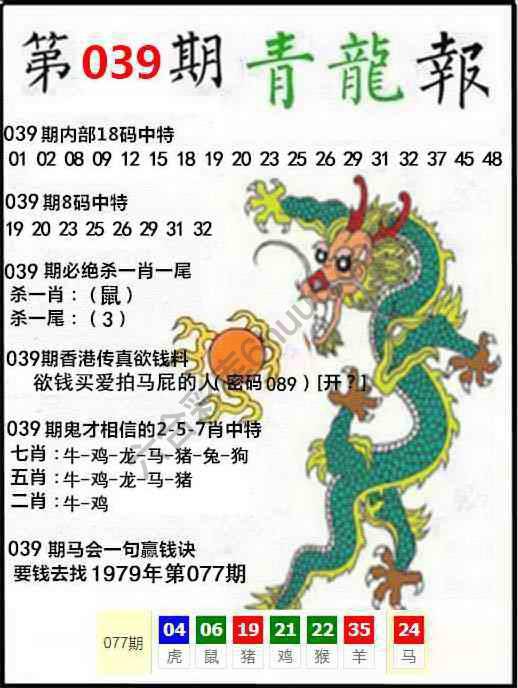 第039期青龍報
039期内部18码中特
01 02 08 09 12 15 18 19 20 23 25 26 29 31 32 37 45 48
039期8码中特
19 20 23 25 26 29 31 32
039 期必绝杀一肖一尾
杀一肖：（鼠）
杀一尾：（3）
039期香港传真欲钱料
欲钱买爱拍马屁的人(密码089）[开？]
039期鬼才相信的2-5-7肖中特
七肖：牛-鸡-龙-马-猪-兔-狗
五肖：牛-鸡-龙-马-猪
二肖：牛-鸡
039 期马会一句赢钱诀
要钱去找1979年第077期
077期 04 06 19 21 22 35 24
虎 鼠 猪 鸡 猴 羊 马